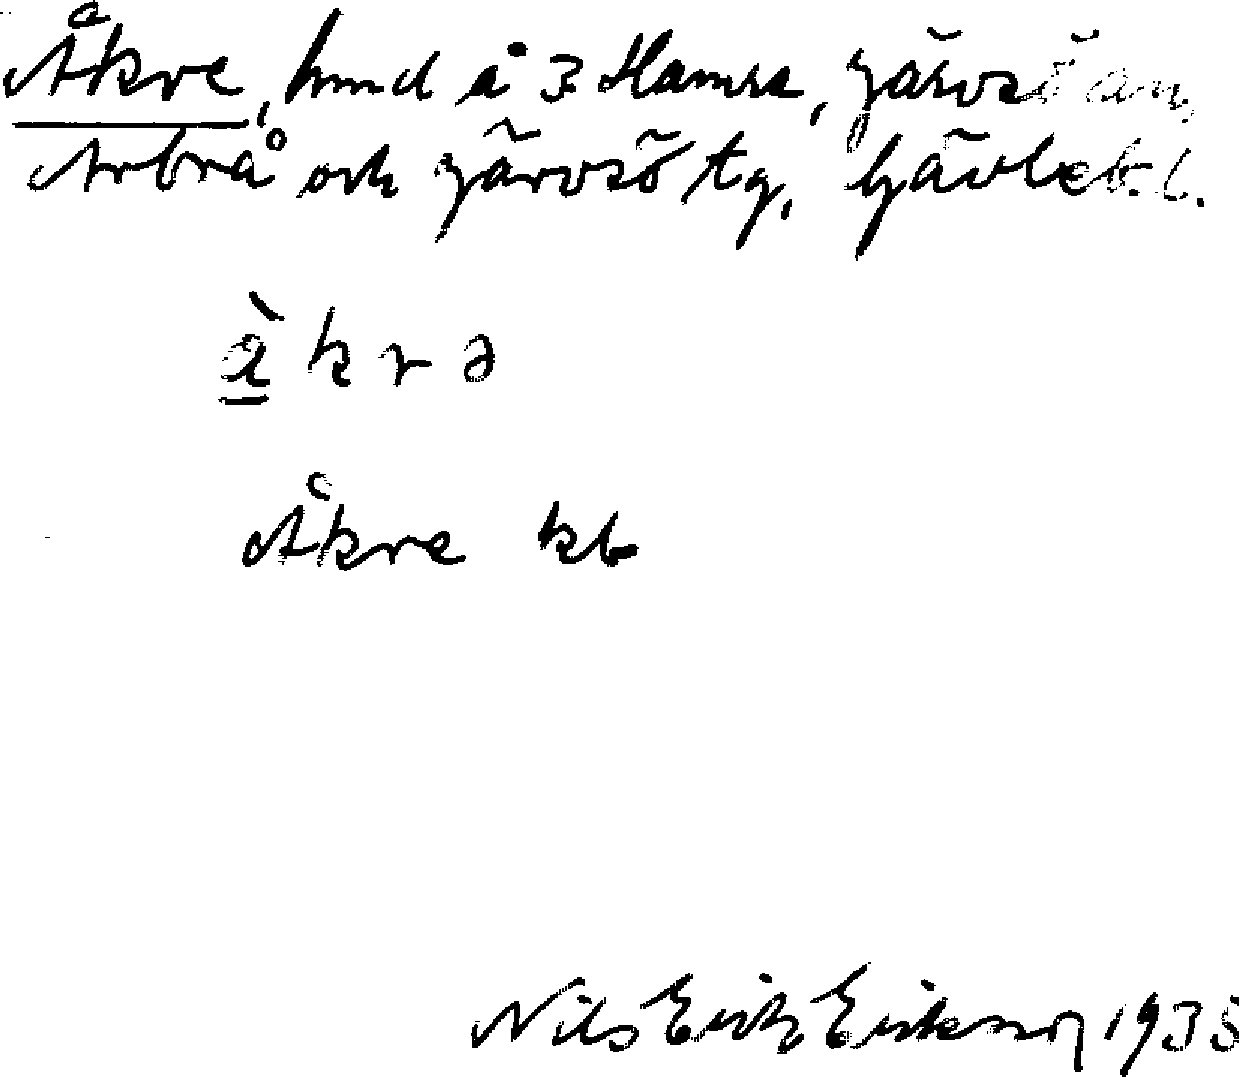 Åkre, hmd å 3 Hamra, Järvsö sn,
Arbrå och Järvsö tg, Gävleb. l.
å k r ə
Åkre kb
Nils Erik Erikson, 1935